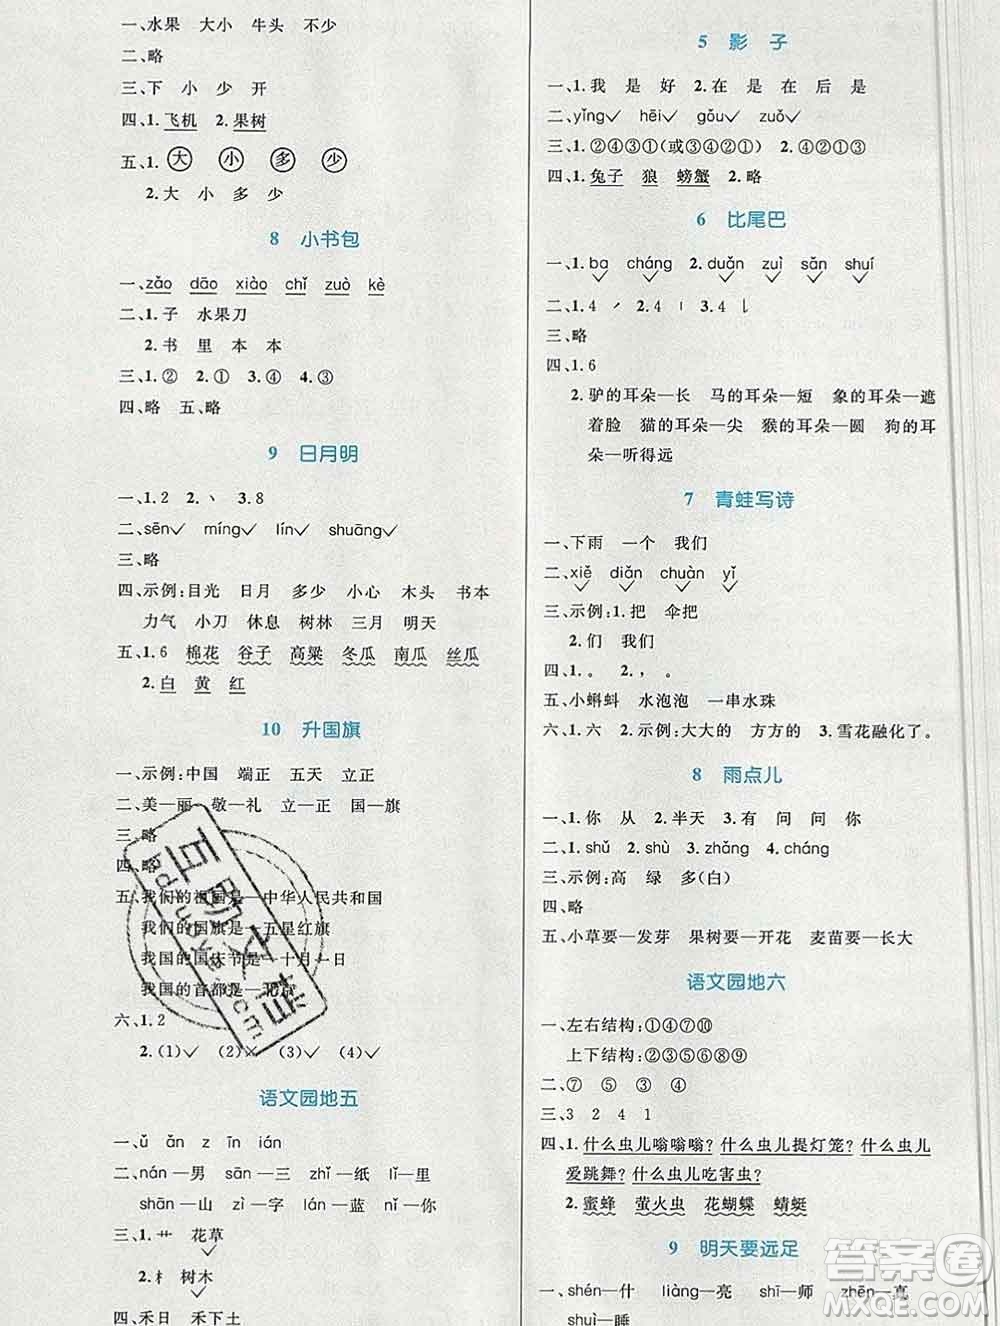 一、水果　大小　牛头　不少
二、略
三、下　小　少　开
四、1.飞机　2.果树
五、1.大　小　多　少
2.大　小　多　少
8　小书包
一、zǎo　dāo　xiào　chǐ　zuò　kè
二、1.子　水果刀
2.书　里　本　本
三、1.②　2.①　3.④　4.③
四、略　五、略
9　日月明
一、1.2　2.丶　3.8
二、sēn✓　míng✓　lín✓　shuāng✓
三、略
四、示例:目光　日月　多少　小心　木头　书本
力气　小刀　休息　树林　三月　明天
五、1.6　棉花　谷子　高粱　冬瓜　南瓜　丝瓜
2.白　黄　红
10　升国旗
一、示例:中国　端正　五天　立正
二、美—丽　敬—礼　立—正　国—旗
三、略
四、略
五、我们的祖国是—中华人民共和国
我们的国旗是—五星红旗
我国的国庆节是—十月一日
我国的首都是—北京
六、1.2
2.(1)✓　(2)×　(3)✓　(4)✓
语文园地五
一、ǔ　ǎn　z　īn　ián
二、nán—男　sān—三　zhǐ—纸　lǐ—里
shān—山　zì—字　lán—蓝　nǐ—你
三、1.艹　花草✓
2.木　树木✓
四、禾日　禾下土
5　影　子
一、1.我　是　好　2.在　是　在　后　是
二、yǐng✓　hēi✓　gǒu✓　zuǒ✓
三、1.②④③①(或③④②①)　2.④②①③
四、1.兔子　狼　螃蟹　2.略
6　比尾巴
一、1.ba　cháng✓　2.duǎn✓　zuì✓　sǎn✓　shuí✓
二、1.4　㇒　2.4　丨　3.4　亅
三、略
四、1.6
2.驴的耳朵—长　马的耳朵—短　象的耳朵—遮
着脸　猫的耳朵—尖　猴的耳朵—圆　狗的耳
朵—听得远
7　青蛙写诗
一、下雨　一个　我们
二、xiě✓　diǎn✓　chuàn✓　yǐ✓
三、示例:1.把　伞把
2.们　我们
四、1.。　2.，　。
五、小蝌蚪　水泡泡　一串水珠
六、1.六　2.示例:大大的　方方的　3.雪花融化了。
8　雨点儿
一、1.你　从　2.半天　3.有　问　问　你
二、1.shǔ　2.shù　3.zhǎng　4.cháng
三、示例:高　绿　多(白)
四、略
五、小草要—发芽　果树要—开花　麦苗要—长大
语文园地六
一、左右结构:①④⑦⑩
上下结构:②③⑤⑥⑧⑨
二、⑦　⑤　④　①　②　③　⑥
三、3　2　4　1
四、1.什么虫儿嗡嗡嗡?　什么虫儿提灯笼?　什么虫儿
爱跳舞?　什么虫儿吃害虫?
2.蜜蜂　萤火虫　花蝴蝶　蜻蜓
9　明天要远足
一、shén—什　liàng—亮　shī—师　zhēn—真
shuì—睡
答案圈
MXQE.COM
互助文档